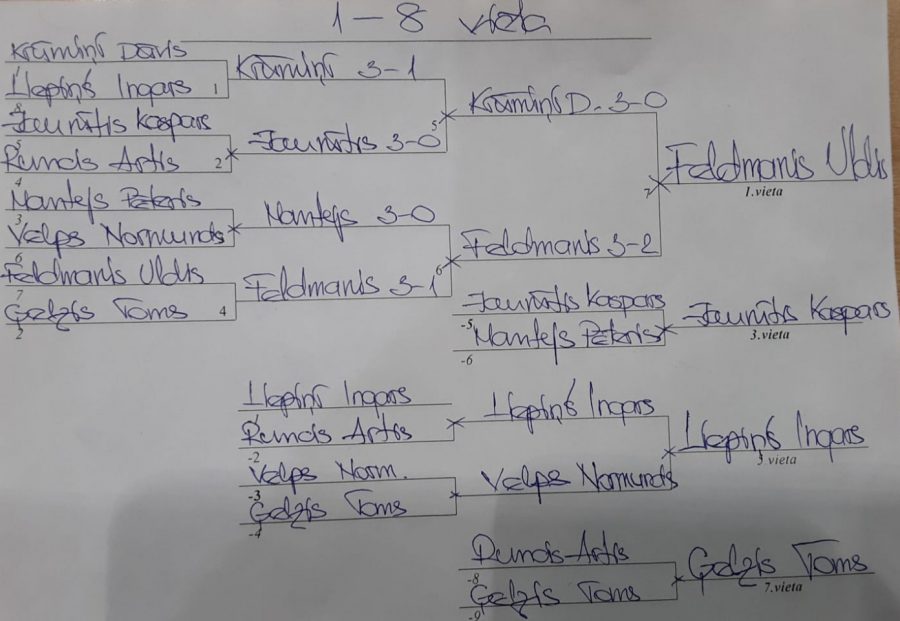 1 – 8 vieta
Krūmiņš Dāvis
Krūmiņš 3-1
Liepiņš Ingars 1
8
Jaunītis Kaspars
Krūmiņš D. 3-0
5
5
Jaunītis 3-0
Runcis Artis 2
4
Feldmanis Uldis
1.vieta
7
Mantejs Pēteris
3
Mantejs 3-0
Velps Normunds
6
Feldmanis 3-2
6
Feldmanis Uldis
7
Feldmanis 3-1
Gedzis Toms 4
2
Jaunītis Kaspars
-5
Jaunītis Kaspars
3.vieta
Mantejs Pēteris
-6
Liepiņš Ingars
Liepiņš Ingars
Runcis Artis
-2
Liepiņš Ingars
5.vieta
Velps Norm.
-3
Velps Normunds
Gedzis Toms
-4
Runcis Artis
-8
Gedzis Toms
7.vieta
Gedzis Toms
-9